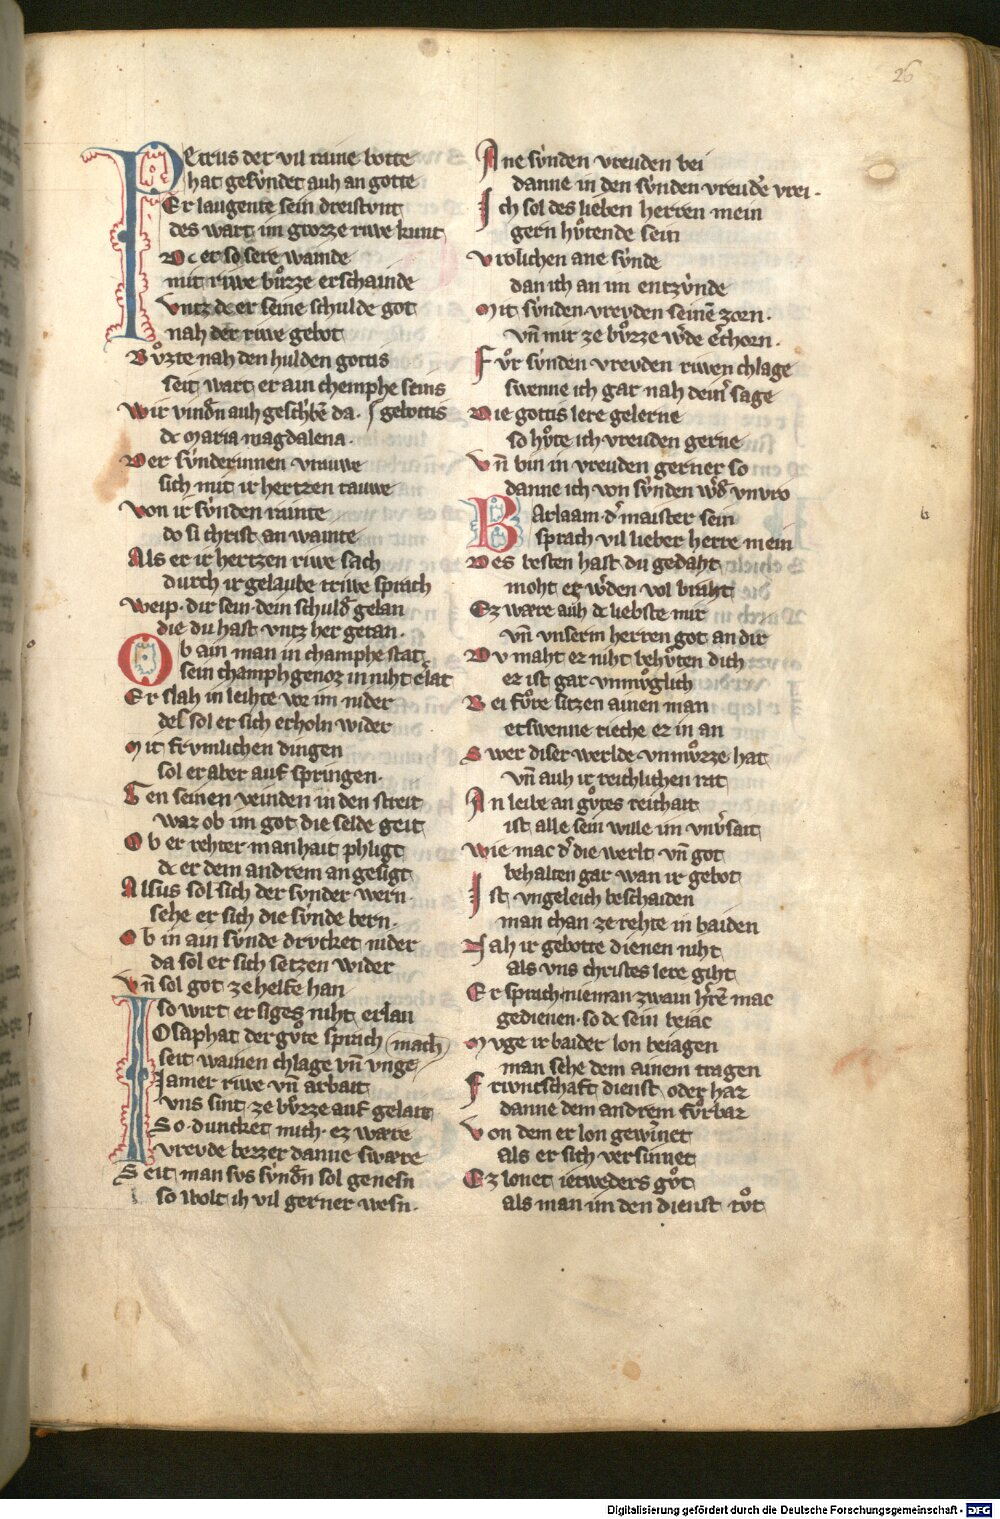 26
Petrus der vil raine botte
hat gesv̂ndet auh an gotte
Er laugente sein dreistvnt
des wart im grozze riwe kunt
Dc er so sere wainde
mit riwe bůzze erschainde
vntz dc er seine schulde got
nah der riwe gebot
Bůzte nah den hulden gottis
seit wart er ain chemphe seins
Wir vindn̄ auh geschbē da. ſ gebottis
dc Maria magdalena.
Der sv̂nderinnen vrauwe
sich mit ir hertzen tauwe
Von ir sv̂nden rainte
do si christ an wainte
Als er ir hertzen riwe sach
durch ir gelaube triwe sprach
Weip. dir sein dein schuld̄ gelan
die du hast vntz her getan.
Ob ain man in champhe stat
sein champhgenoz in niht el̄at
Er slah in leihte we im nider
des sol er sich erholn wider
Mit frvmlichen dingen
sol er aber auf springen.
Gen seinen veinden in den streit
war ob im got die selde geit
Ob er rehter manhait phligt
dc er dem andrem angesigt
Alsus sol sich der sv̂nder wern.
sehe er sich die sv̂nde bern.
Ob in ain sv̂nde drvcket nider
da sol er sich setzen wider
Vn̄ sol got ze helfe han
so wirt er siges niht erlan
IOsaphat der gůte sprach (mach)
seit wainen chlage vn̄ vnge
Iamer riwe vn̄ arbait
vns sint ze bv̊zze auf gelait
So duncket mich. ez wære
vrevde bezzer danne swære
Seit man svs sv̂ndn̄ sol genesn̄
so wolt ih vil gerner wesn̄.
Ane sv̂nden vreuden bei
danne in den sv̂nden vreude vrei.
Ich sol des lieben herren mein
gern hv̊tende sein
Vrolichen ane sv̂nde
dan ich an im entzv̂nde
Mit sv̂nden vreyden seinē zorn.
vn̄ mir ze bv̊zze wd̄e er̄chorn.
Fv̊r sv̂nden vreyden riwen chlage
swenne ich gar nah dein̄ sage
Die gottis lere gelerne
so hv̊te ich vreuden gerne
Vn̄ bin in vreuden gerner so
danne ich von sv̂nden wd̄ vnvro
BArlaam d̄ maister sein
sprach vil lieber herre mein
Des besten hast du gedaht
moht er wd̄en vol braht
Ez wære auh dc liebste mir
vn̄ vnserm herren got an dir
Dv maht er niht behv̊ten dich
er ist gar vnmv̊glich
Bei fv̊re sitzen ainen man
etswenne rieche er in an
Swer diser werlde vnmv̊zze hat
vn̄ auh ir reichlichen rat
An leibe an gv̊tes reichait
ist alle sein wille im vnv̄sait
Wie mac d̄ die werlt vn̄ got
behalten gar wan ir gebot
Ist vngeleich beschaiden
man chan ze rehte in baiden
Nah ir gebotte dienen niht
als vns christes lere giht
Er sprach nieman zwain hr̄ē mac
gedienen. so dc sein beiac
Mvge ir baider lon beiagen
man sehe dem ainem tragen
Frivntschaft dienst oder haz
danne dem andrem fv̊rbaz
Von dem er lon gewinnet
als er sich versinnet
Ez lonet ietweders gv̊t
als man im den dienst tv̊t
b
Digitalisierung gefördert durch die Deutsche Forschungsgemeinschaft - DFG